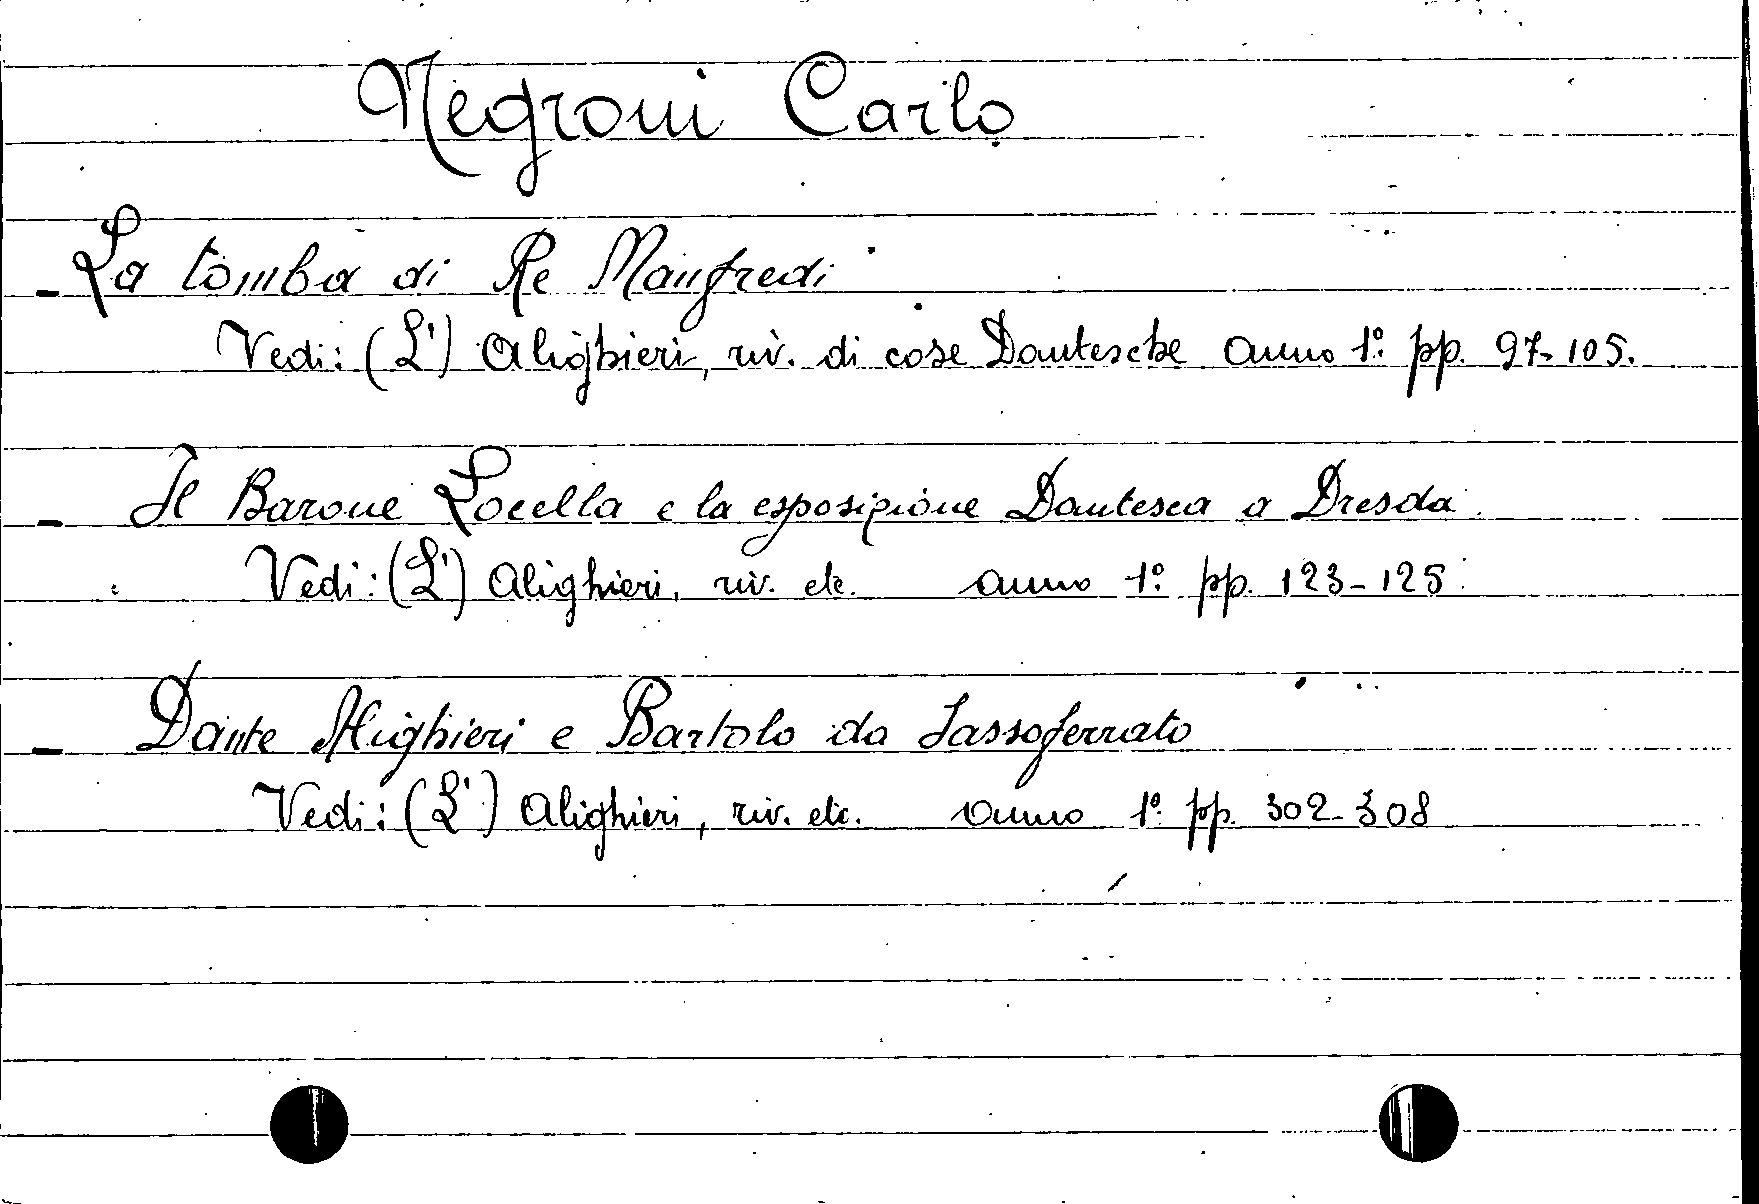 Negroni Carlo
- La tomba di Re Manfredi
Vedi: (L') Alighieri, riv. di cose Dantesche anno 1º. pp. 97-105.
- Il Barone Locella e la esposizione Dantesca a Dresda
Vedi: (L') Alighieri, riv. etc. anno 1º pp. 123-125
- Dante Alighieri e Bartolo da Sassoferrato
Vedi: (L') Alighieri, riv. etc. anno 1º pp. 302-308